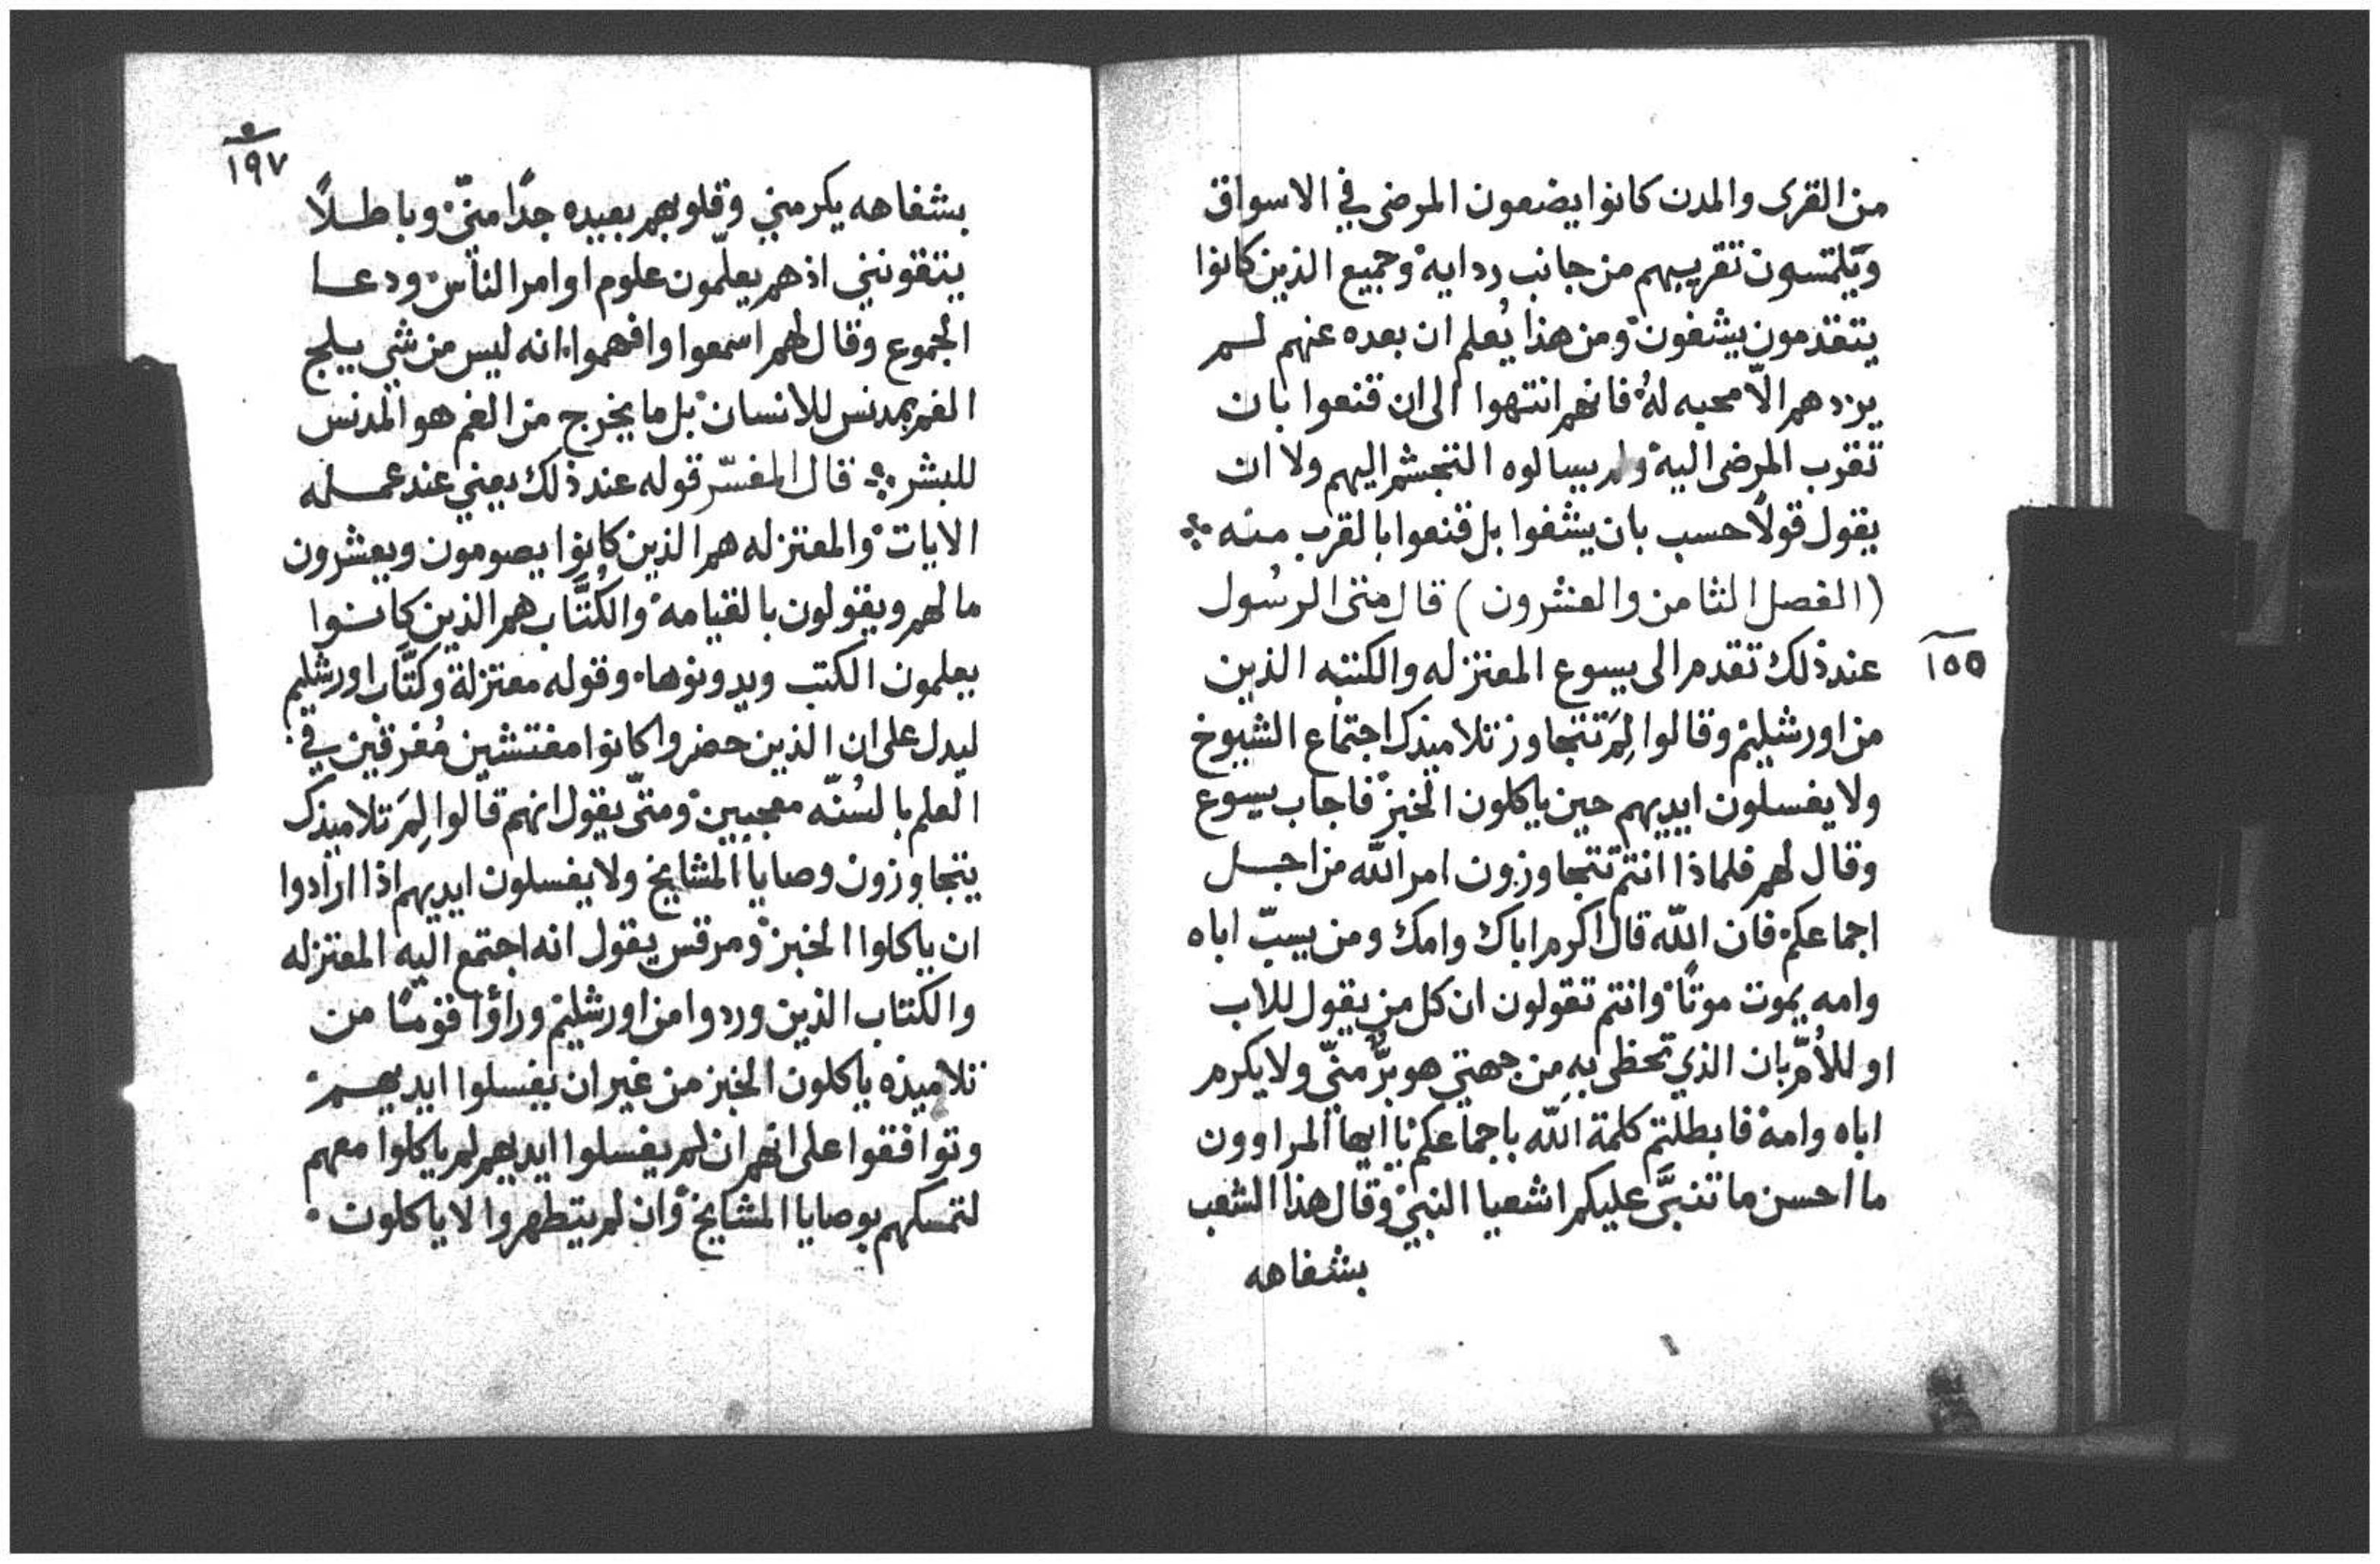 من القرى والمدن كانوا يضعون المرضى في الاسواق
ويلتمسون تقريبهم من جانب ردايه وجميع الذين كانوا
يتقدمون يشفون ومن هذا يُعلم ان بعده عنهم لم
يزدهم الّا محبه لهُ فانهم انتهوا الى ان قنعوا بان
تقرب المرضى اليه ولم يسالوه التجشم اليهم ولا ان
يقول قولًا حسب بان يشفوا بل قنعوا بالقرب منه
(الفصل الثامن والعشرون) قال متى الرسُول
١٥٥
عند ذلك تقدم الى يسوع المعتزله والكتبه الذين
من اورشليم وقالوا لِمَ تتجاوز تلاميذك اجتماع الشيوخ
ولا يغسلون ايديهم حين ياكلون الخبز فاجاب يسوع
وقال لهم فلماذا انتم تتجاوزون امر الله من اجل
اجماعكم فان الله قال اكرم اباك وامك ومن يسبّ اباه
وامه يموت موتًا وانتم تقولون ان كل من يقول للاب
او للأُمّ بان الذي تحظى بهِ من جهتي هو برٌّ منّي ولا يكرم
اباه وامه فابطلتم كلمة الله باجماعكم يا ايها المراوون
ما احسن ما تنبَّى عليكم اشعيا النبيّ وقال هذا الشعب
بشفاهه
١٩٧
بشفاهه يكرمني وقلوبهم بعيده جدًا منّي وباطلًا
يتقونني اذ هم يعلّمون علوم اوامر الناس ودعا
الجموع وقال لهم اسمعوا وافهموا انه ليس من شي يلج
الفم بمدنس للانسان بل ما يخرج من الفم هو المدنس
للبشر قال المفسّر قوله عند ذلك يعني عند عمله
الايات والمعتزله هم الذين كانوا يصومون ويعشرون
ما لهم ويقولون بالقيامه والكُتَّاب هم الذين كانوا
يعلمون الكتب ويدونوها وقوله معتزلة وكتَّاب اورشليم
ليدل على ان الذين حضروا كانوا مفتشين مُغرقين في
العلم بالسُنّه معجبين ومتّى يقول انهم قالوا لِمَ تلاميذك
يتجاوزون وصايا المشايخ ولا يغسلون ايديهم اذا ارادوا
ان ياكلوا الخبز ومرقس يقول انه اجتمع اليه المعتزله
والكتاب الذين وردوا من اورشليم وراؤا قومًا من
تلاميذه ياكلون الخبز من غير ان يغسلوا ايديهم
وتوافقوا على انهم ان لم يغسلوا ايديهم لم ياكلوا معهم
لتمسكهم بوصايا المشايخ وان لم يتطهروا لا ياكلون